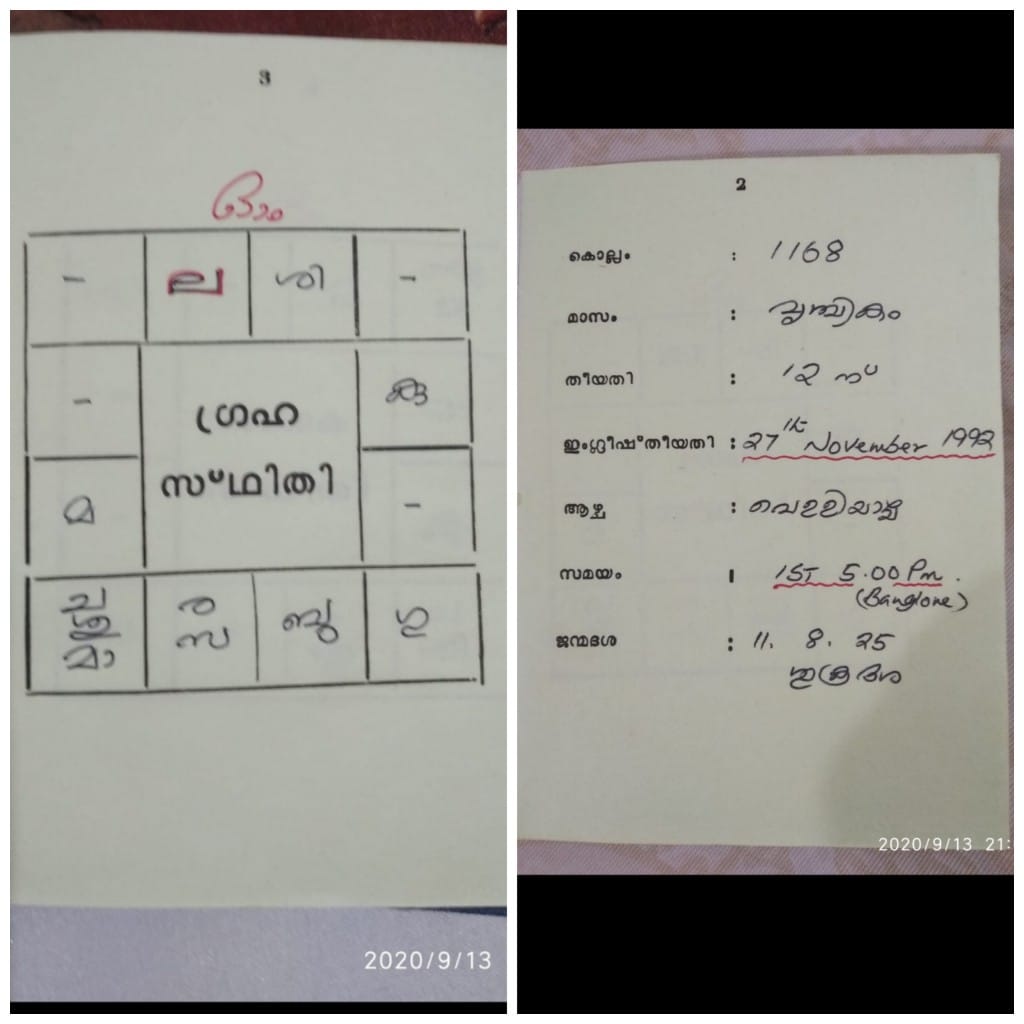 3
ഓം
- ല ശി -
- കു
ഗ്രഹ
സ്ഥിതി
മ -
ച ര ബു ഗു
ശു സ
മാ
2020/9/13
2
കൊല്ലം : 1168
മാസം : വൃശ്ചികം
തീയതി : 12 ന്
ഇംഗ്ലീഷ് തീയതി : 27th November 1992
ആഴ്ച : വെള്ളിയാഴ്ച
സമയം : IST 5.00 Pm.
(Banglore)
ജന്മദശ : 11. 8. 25
ശുക്രദശ
2020/9/13 21: